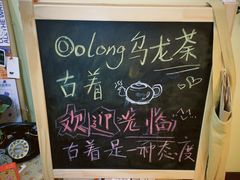 Oolong乌龙茶
古着
欢迎光临
古着是一种态度